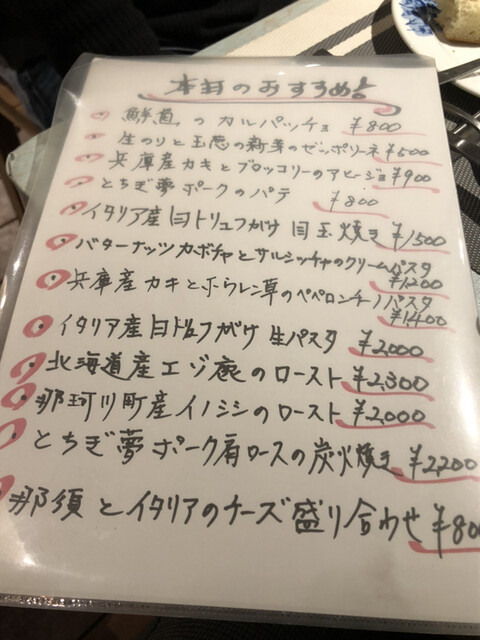 本日のおすすめ
鮮魚のカルパッチョ ¥800
生のりと玉葱の新芽のゼッポリーネ ¥500
兵庫産カキとブロッコリーのアヒージョ ¥900
とちぎ夢ポークのパテ ¥800
イタリア産白トリュフがけ 目玉焼き ¥1500
バターナッツカボチャとサルシッチャのクリームパスタ
¥1200
兵庫産カキとホウレン草のペペロンチーノパスタ
¥1400
イタリア産白トリュフがけ 生パスタ ¥2,000
北海道産エゾ鹿のロースト ¥2,300
那珂川町産イノシシのロースト ¥2,000
とちぎ夢ポーク肩ロースの炭火焼き ¥2,200
那須とイタリアのチーズ盛り合わせ ¥800